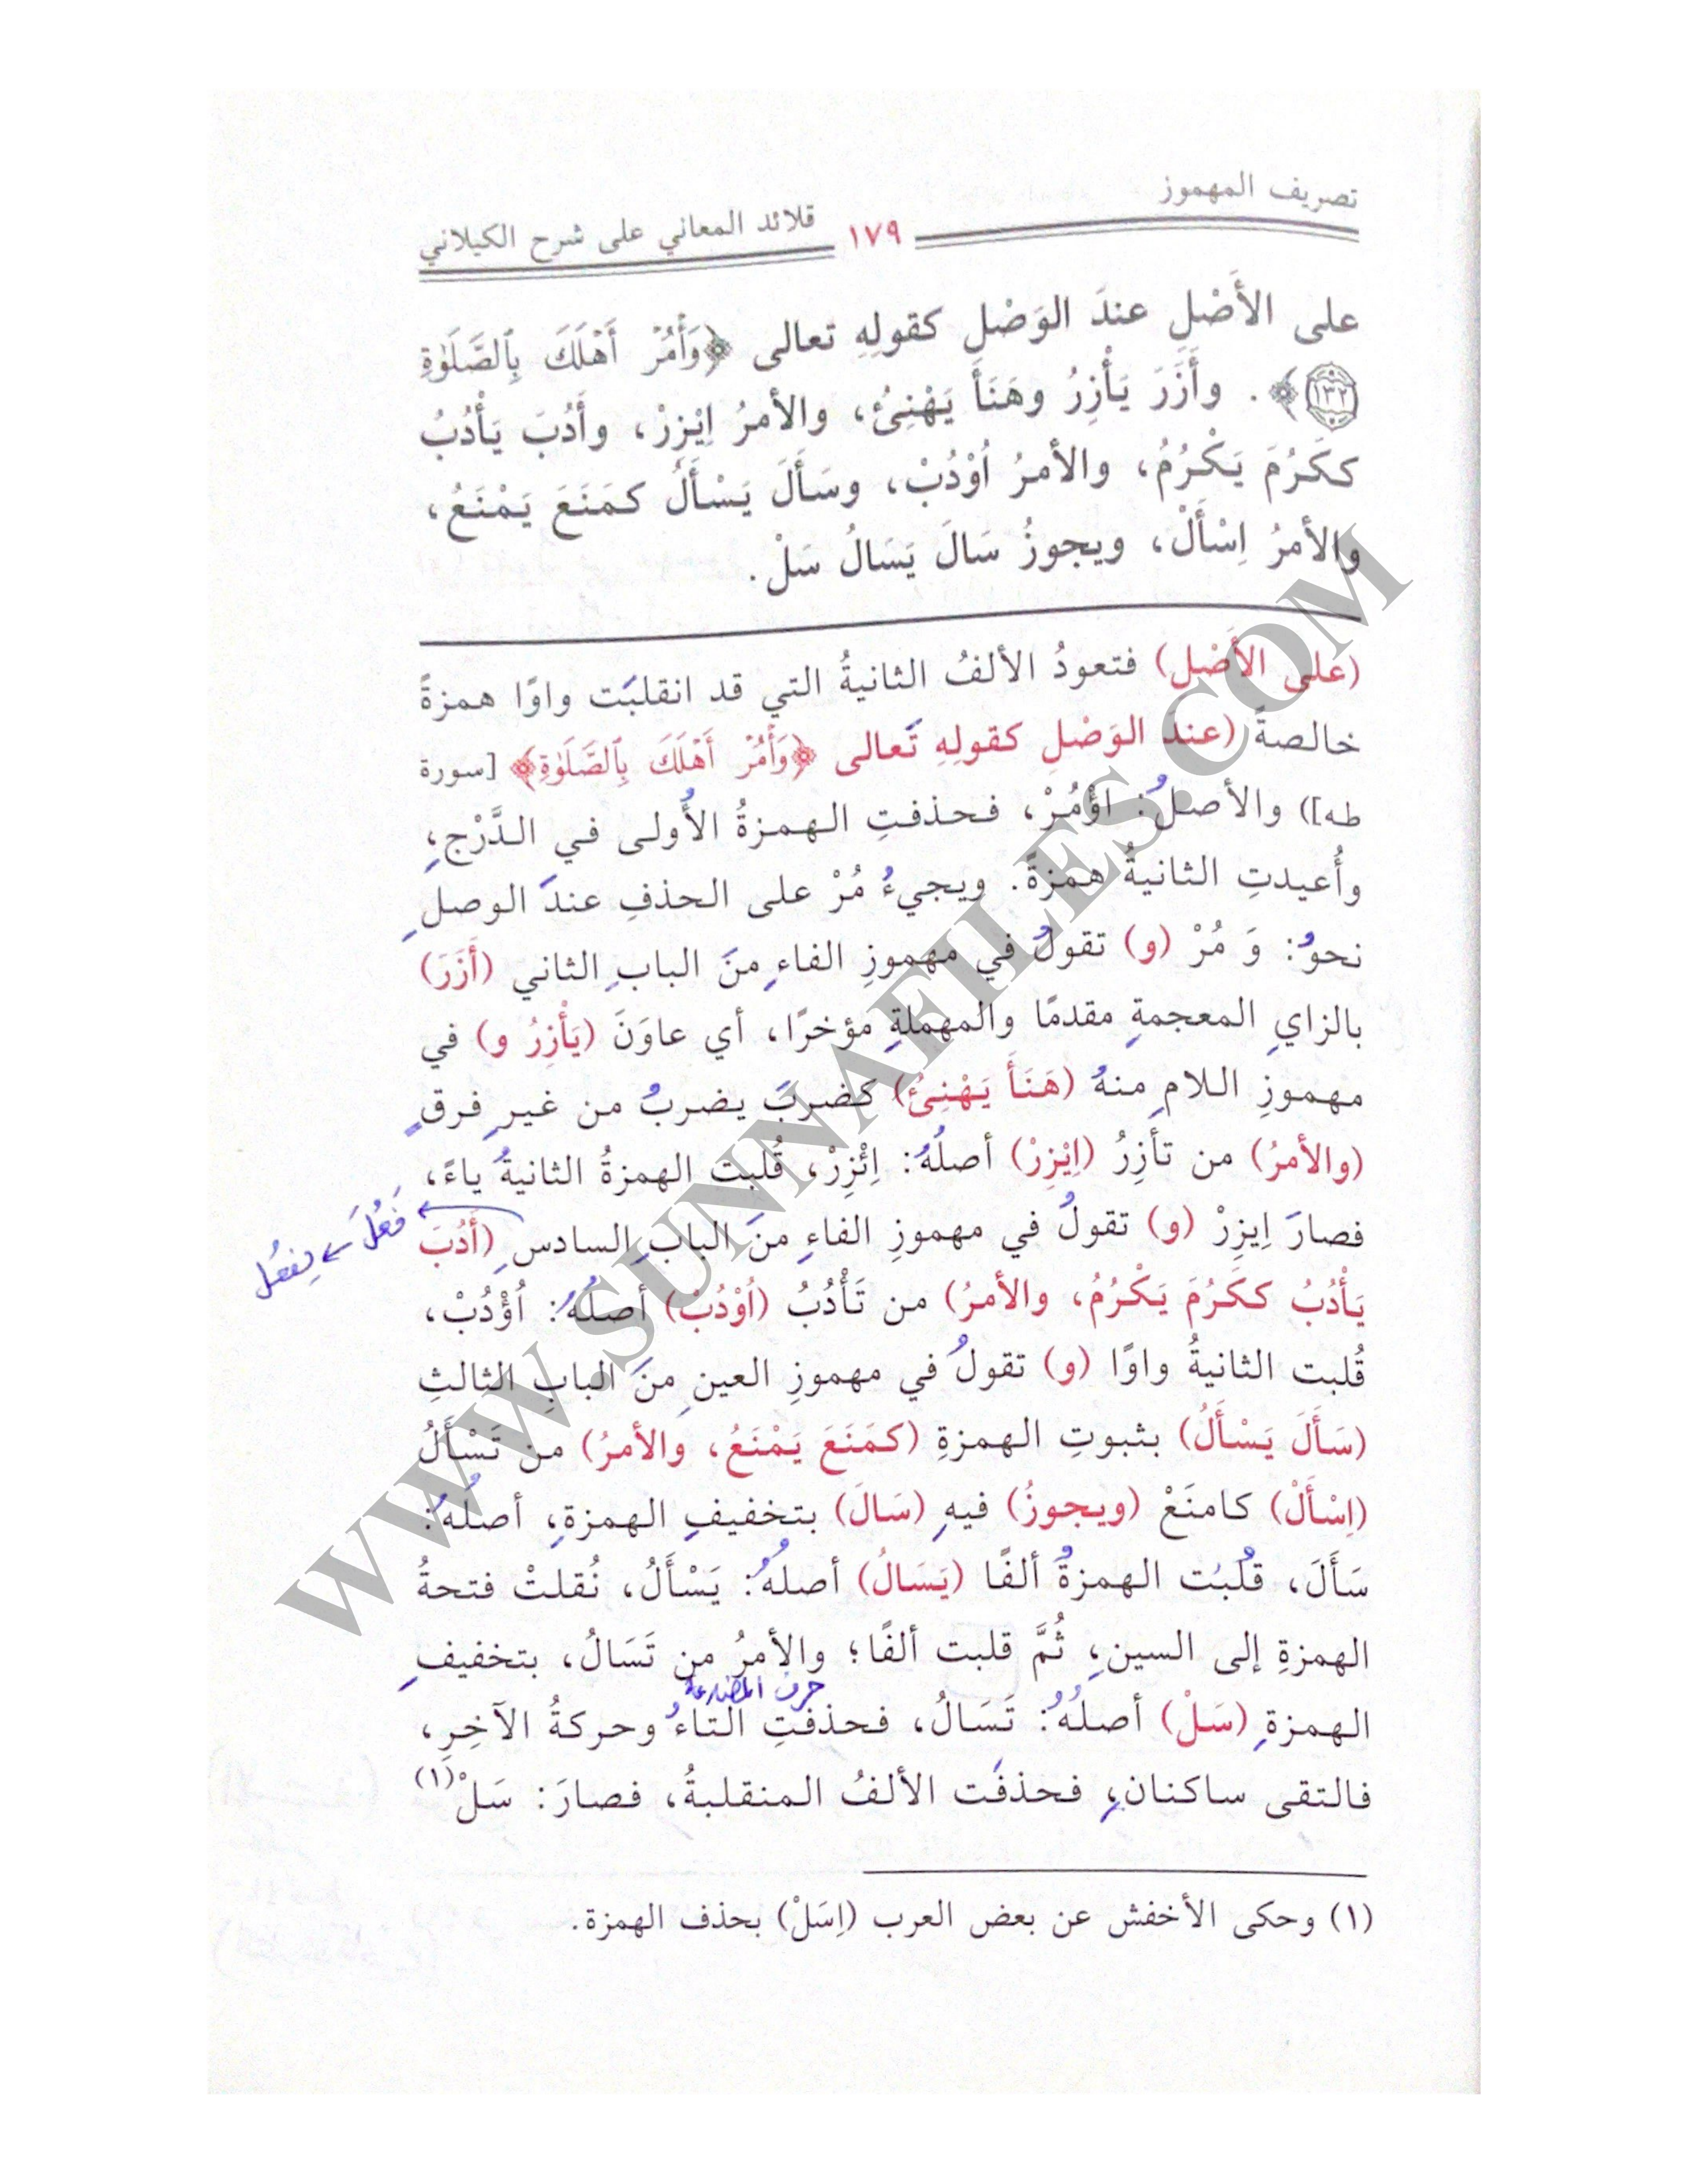 تصريف المهموز
١٧٩
قلائد المعاني على شرح الكيلاني
على الأَصْلِ عندَ الوَصْلِ كقولِهِ تعالى ﴿وَأْمُرْ أَهْلَكَ بِٱلصَّلَوٰةِ
١٣٢﴾. وأَزَرَ يَأْزِرُ وهَنَأَ يَهْنِئُ، والأمرُ اِيْزِرْ، وأَدُبَ يَأْدُبُ
ككَرُمَ يَكْرُمُ، والأمرُ اُوْدُبْ، وسَأَلَ يَسْأَلُ كمَنَعَ يَمْنَعُ،
والأمرُ اِسْأَلْ، ويجوزُ سَالَ يَسَالُ سَلْ.
(على الأَصْلِ) فتعودُ الألفُ الثانيةُ التي قد انقلبَت واوًا همزةً
خالصةً (عندَ الوَصْلِ كقولِهِ تَعالى ﴿وَأْمُرْ أَهْلَكَ بِٱلصَّلَوٰةِ﴾ [سورة
طه]) والأصلُ: اؤْمُرْ، فحذفتِ الهمزةُ الأُولى في الدَّرْجِ،
وأُعيدتِ الثانيةُ همزةً. ويجيءُ مُرْ على الحذفِ عندَ الوصلِ
نحوُ: وَ مُرْ (و) تقولُ في مهموزِ الفاءِ منَ البابِ الثاني (أَزَرَ)
بالزايِ المعجمةِ مقدمًا والمهملةِ مؤخرًا، أي عاوَنَ (يَأْزِرُ و) في
مهموزِ اللامِ منهُ (هَنَأَ يَهْنِئُ) كضربَ يضربُ من غيرِ فرقٍ
(والأمرُ) من تأزِرُ (اِيْزِرْ) أصلُهُ: اِئْزِرْ، قُلبت الهمزةُ الثانيةُ ياءً،
فصارَ اِيزِرْ (و) تقولُ في مهموزِ الفاءِ منَ البابِ السادسِ (أَدُبَ
فَعُلَ ← يفعُل
يَأْدُبُ ككَرُمَ يَكْرُمُ، والأمرُ) من تَأْدُبُ (اُوْدُبْ) أصلُهُ: اُؤْدُبْ،
قُلبت الثانيةُ واوًا (و) تقولُ في مهموزِ العينِ منَ البابِ الثالثِ
(سَأَلَ يَسْأَلُ) بثبوتِ الهمزةِ (كمَنَعَ يَمْنَعُ، والأمرُ) من تَسْأَلُ
(اِسْأَلْ) كامنَعْ (ويجوزُ) فيهِ (سَالَ) بتخفيفِ الهمزةِ، أصلُهُ:
سَأَلَ، قُلبَت الهمزةُ ألفًا (يَسَالُ) أصلُهُ: يَسْأَلُ، نُقلتْ فتحةُ
الهمزةِ إلى السينِ، ثُمَّ قلبت ألفًا؛ والأمرُ من تَسَالُ، بتخفيفِ
حرف المضارعة
الهمزةِ (سَلْ) أصلُهُ: تَسَالُ، فحذفتِ التاءُ وحركةُ الآخِرِ،
فالتقى ساكنانِ، فحذفَت الألفُ المنقلبةُ، فصارَ: سَلْ(١)
(١) وحكى الأخفش عن بعض العرب (اِسَلْ) بحذف الهمزة.
WWW.SUNNAFILES.COM